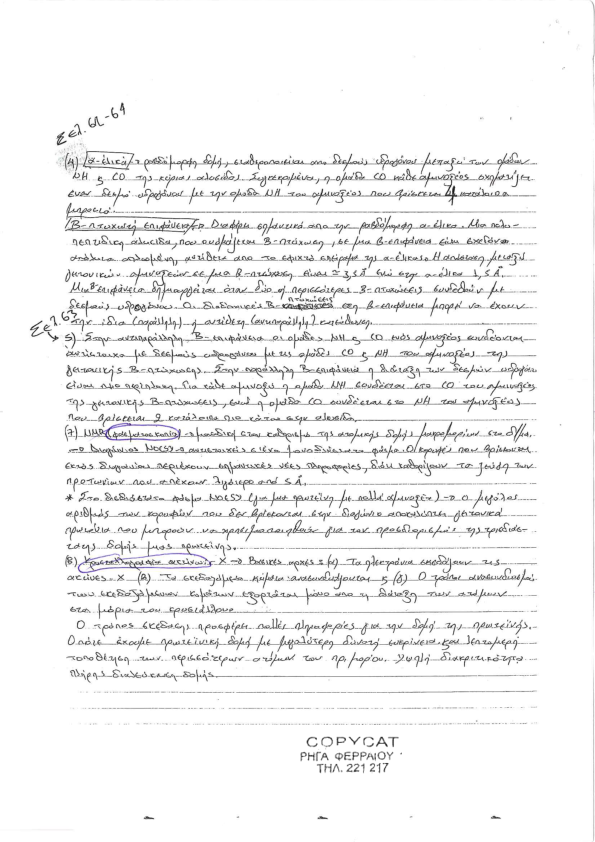 Σελ. 61-64
(4) α-έλικα → ραβδόμορφη δομή, σταθεροποιείται από δεσμούς υδρογόνου μεταξύ των ομάδων
NH & CO της κύριας αλυσίδας. Συγκεκριμένα, η ομάδα CO κάθε αμινοξέος σχηματίζει
έναν δεσμό υδρογόνου με την ομάδα NH του αμινοξέος που βρίσκεται 4 κατάλοιπα
μπροστά.
Β-πτυχωτή επιφάνεια → Διαφέρει σημαντικά από την ραβδόμορφη α-έλικα. Μια πολυ-
πεπτιδική αλυσίδα, που ονομάζεται Β-πτύχωση, σε μια Β-επιφάνεια είναι σχεδόν
απλωμένη, αντίθετα από το σφιχτό σπείραμα της α-έλικας. Η απόσταση μεταξύ
γειτονικών αμινοξέων σε μια Β-πτύχωση είναι ≃ 3,5 Å ενώ στην α-έλικα 1,5 Å.
Μια Β-επιφάνεια δημιουργείται όταν δύο ή περισσότερες Β-πτυχώσεις συνδεθούν με
δεσμούς υδρογόνου. Οι διαδοχικές Β-πτυχώσεις στη Β-επιφάνεια μπορεί να έχουν
Σελ. 63
την ίδια (παράλληλη) ή αντίθετη (αντιπαράλληλη) κατεύθυνση.
5) Στην αντιπαράλληλη Β-επιφάνεια οι ομάδες NH & CO ενός αμινοξέος συνδέονται
αντίστοιχα με δεσμούς υδρογόνου με τις ομάδες CO & NH του αμινοξέος της
γειτονικής Β-πτύχωσης. Στην παράλληλη Β-επιφάνεια η διάταξη των δεσμών υδρογόνου
είναι πιο περίπλοκη. Για κάθε αμινοξύ η ομάδα NH συνδέεται στο CO του αμινοξέος
της γειτονικής Β-πτυχώσεως, ενώ η ομάδα CO συνδέεται στο NH του αμινοξέος
που βρίσκεται 2 κατάλοιπα πιο κάτω στην αλυσίδα.
(7) NMR φασματοσκοπία → σπουδαία στον καθορισμό της ατομικής δομής μακρομορίων στο δ/μα.
→ Διαγώνιος NOESY → αντιστοιχεί σ' ένα μονοδιάστατο φάσμα. Οι κορυφές που βρίσκονται
εκτός διαγωνίου περιέχουν σημαντικές νέες πληροφορίες, διότι καθορίζουν τα ζεύγη των
πρωτονίων που απέχουν λιγότερο από 5 Å.
* Στο δισδιάστατο φάσμα NOESY (για μια πρωτεΐνη με πολλά αμινοξέα) → ο μεγάλος
αριθμός των κορυφών που δεν βρίσκονται στην διαγώνιο αποκαλύπτει γειτονικά
πρωτόνια που μπορούν να χρησιμοποιηθούν για τον προσδιορισμό της τρισδιάσ-
τατης δομής μιας πρωτεΐνης.
(8) Κρυσταλλογραφία ακτίνων X → Βασικές αρχές: (α) Τα ηλεκτρόνια σκεδάζουν τις
ακτίνες X (β) Τα σκεδαζόμενα κύματα ανασυνδυάζονται & (γ) Ο τρόπος ανασυνδυασμού
των σκεδαζόμενων κυμάτων εξαρτάται μόνο από τη διάταξη των ατόμων
στα μόρια του κρυστάλλου.
Ο τρόπος σκέδασης προσφέρει πολλές πληροφορίες για την δομή της πρωτεΐνης.
Οπότε έχουμε πρωτεϊνική δομή με μεγαλύτερη δυνατή ευκρίνεια και λεπτομερή
τοποθέτηση των περισσότερων ατόμων του πρ. μορίου. Χαμηλή διακριτικότητα
πλήρης διαλεύκανση δομής.
COPYCAT
ΡΗΓΑ ΦΕΡΡΑΙΟΥ
ΤΗΛ. 221 217